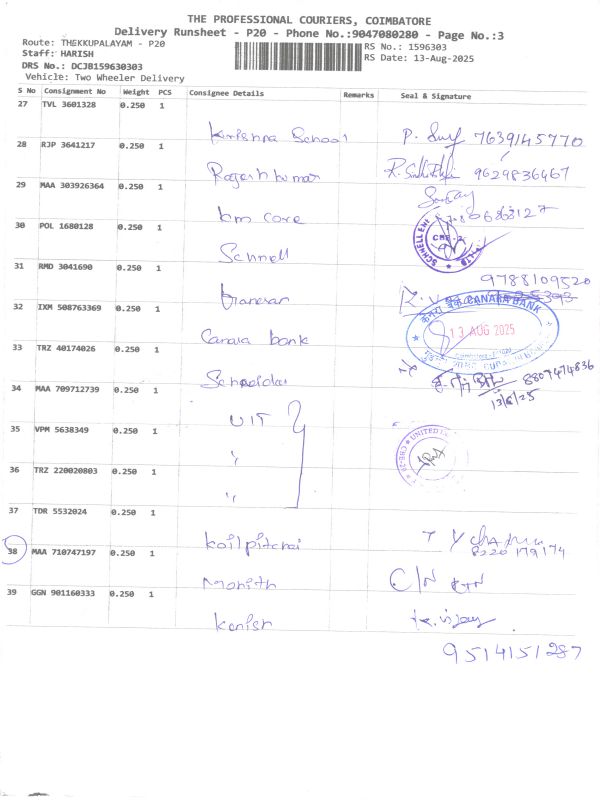 THE PROFESSIONAL COURIERS, COIMBATORE
Delivery Runsheet - P20 - Phone No.:9047080280 - Page No.:3
Route: THEKKUPALAYAM - P20
RS No.: 1596303
Staff: HARISH
RS Date: 13-Aug-2025
DRS No.: DCJB159630303
Vehicle: Two Wheeler Delivery
S No Consignment No Weight PCS Consignee Details Remarks Seal & Signature
27 TVL 3601328 0.250 1
Krishna School P. 7639145770
28 RJP 3641217 0.250 1
Rajeshkumar R. 9629836467
29 MAA 303926364 0.250 1
km care
30 POL 1680128 0.250 1
Schnell
CBE-2
31 RMD 3041690 0.250 1
9788109520
32 IXM 508763369 0.250 1
Canara bank
केनरा बैंक CANARA BANK
13 AUG 2025
33 TRZ 40174026 0.250 1
8807474836
13/8/25
34 MAA 709712739 0.250 1
UIT
35 VPM 5638349 0.250 1
"
UNITED
36 TRZ 220020803 0.250 1
"
37 TDR 5532024 0.250 1
Koilpitchai
8220179174
38 MAA 710747197 0.250 1
Monith C/N
39 GGN 901160333 0.250 1
Kanish
9514151287